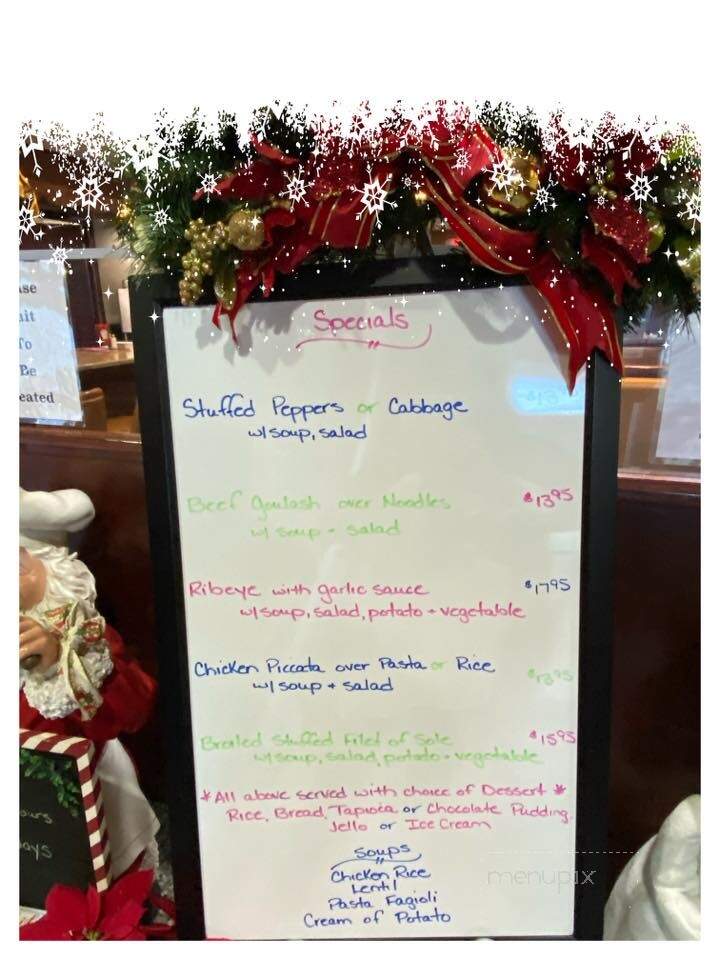 Specials
Stuffed Peppers or Cabbage
w/ soup, salad
Beef Goulash over Noodles $13.95
w/ soup + salad
Ribeye with garlic sauce $17.95
w/ soup, salad, potato + vegetable
Chicken Piccata over Pasta or Rice $13.95
w/ soup + salad
Broiled Stuffed Filet of Sole $15.95
w/ soup, salad, potato + vegetable
*All above served with choice of Dessert*
Rice, Bread, Tapioca or Chocolate Pudding,
Jello or Ice Cream
Soups
Chicken Rice
Lentil
Pasta Fagioli
Cream of Potato
menupix
it
To
Be
eated
ays